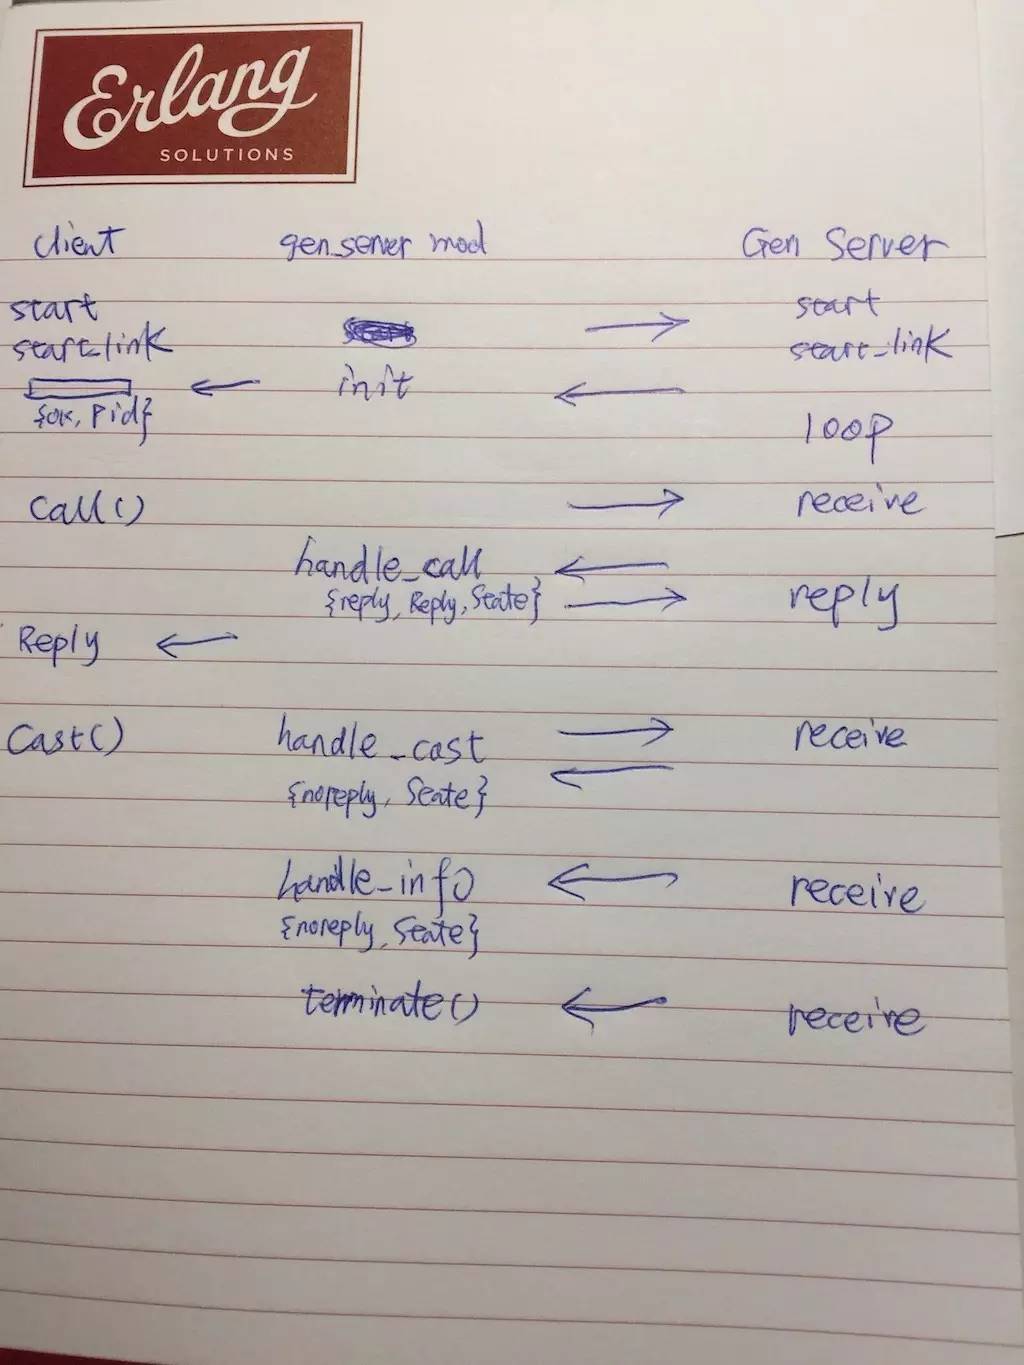 Erlang
SOLUTIONS
client gen_server mod Gen Server
start start
start_link start_link
init
{ok, Pid}
loop
Call() receive
handle_call
{reply, Reply, State} reply
Reply
Cast() handle_cast receive
{noreply, State}
handle_info receive
{noreply, State}
terminate() receive